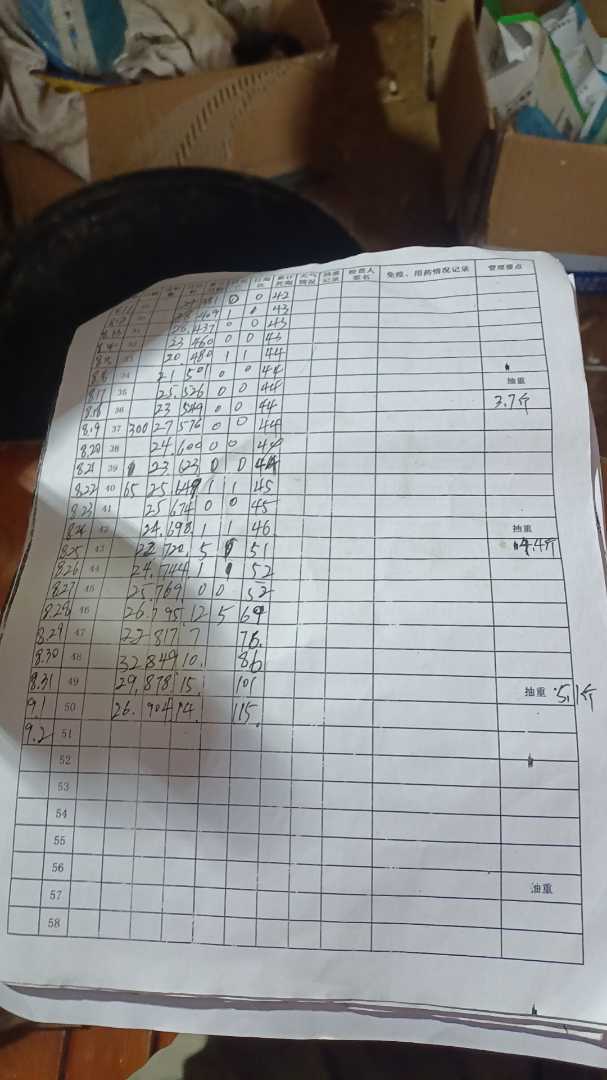 累计死淘 天气情况 抽重记录 检查人签名 免疫、用药情况记录 管理要点
0 0 42
409 1 0 43
26 437 0 0 43
23 460 0 0 43
20 480 1 1 44
8.16 34 21 501 0 0 44 抽重
8.17 35 25 526 0 0 44 3.7斤
8.18 36 23 549 0 0 44
8.19 37 300 27 576 0 0 44
8.20 38 24 600 0 0 44
8.21 39 23 623 0 0 44
8.22 40 65 25 649 1 1 45
8.23 41 25 674 0 0 45
8.24 42 24 698 1 1 46 抽重
8.25 43 22 720 5 51 4.4斤
8.26 44 24 744 1 52
8.27 45 25 769 0 0 52
8.28 46 26 795 12 5 64
8.29 47 22 817 7 76
8.30 48 32 849 10 86
8.31 49 29 878 15 101 抽重 5.1斤
9.1 50 26 904 14 115
9.2 51
52
53
54
55
56 抽重
57
58